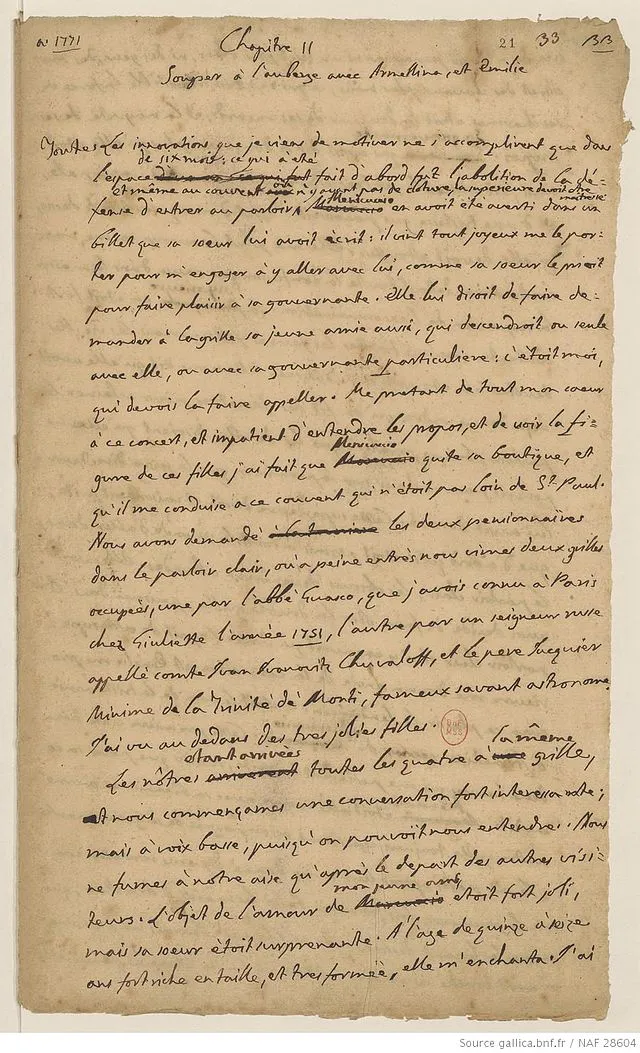 an 1771
Chapitre II
21 33 33
Souper à l'auberge avec Armelline, et Emilie
Toutes les innovations que je viens de motiver ne s'accomplirent que dans
de six mois: ce qui a été
l'espace fait d'abord fut l'abolition de la dé=
et même au couvent où n'y ayant pas de cloture, la superieure devoit être
maitresse
fense d'entrer au parloir, Menicuccio en avoit été averti dans un
billet que sa soeur lui avoit écrit: il vint tout joyeux me le por=
ter pour m'engager à y aller avec lui, comme sa soeur le prioit
pour faire plaisir à sa gouvernante. Elle lui disoit de faire de=
mander à la grille sa jeune amie aussi, qui descendroit ou seule
avec elle, ou avec sa gouvernante particuliere: c'étoit moi,
qui devois la faire appeller. Me pretant de tout mon coeur
à ce concert, et impatient d'entendre les propos, et de voir la fi=
Menicuccio
gure de ces filles j'ai fait que quite sa boutique, et
qu'il me conduise a ce couvent qui n'étoit pas loin de St. Paul.
Nous avons demandé les deux pensionnaires
dans le parloir clair, où à peine entrés nous vimes deux grilles
occupées, une par l'abbé Guasco, que j'avois connu à Paris
chez Giuliette l'année 1751, l'autre par un seigneur russe
appellé comte Ivan Ivanovitz Chuvaloff, et le pere Jacquier
Minime de la Trinité dé Monti, fameux savant astronome.
J'ai vu au dedans des tres jolies filles.
BIBL MSS
etant arrivées la même
Les nôtres toutes les quatre à grille,
nous commençames une conversation fort interessante;
mais à voix basse, puisqu'on pouvoit nous entendre. Nous
ne fumes à nôtre aise qu'après le depart des autres visi=
mon jeune ami,
teurs. L'objet de l'amour de etoit fort joli,
mais sa soeur étoit surprenante. A l'age de quinze à seize
ans fort riche en taille, et tres formée, elle m'enchanta. J'ai
Source gallica.bnf.fr / NAF 28604